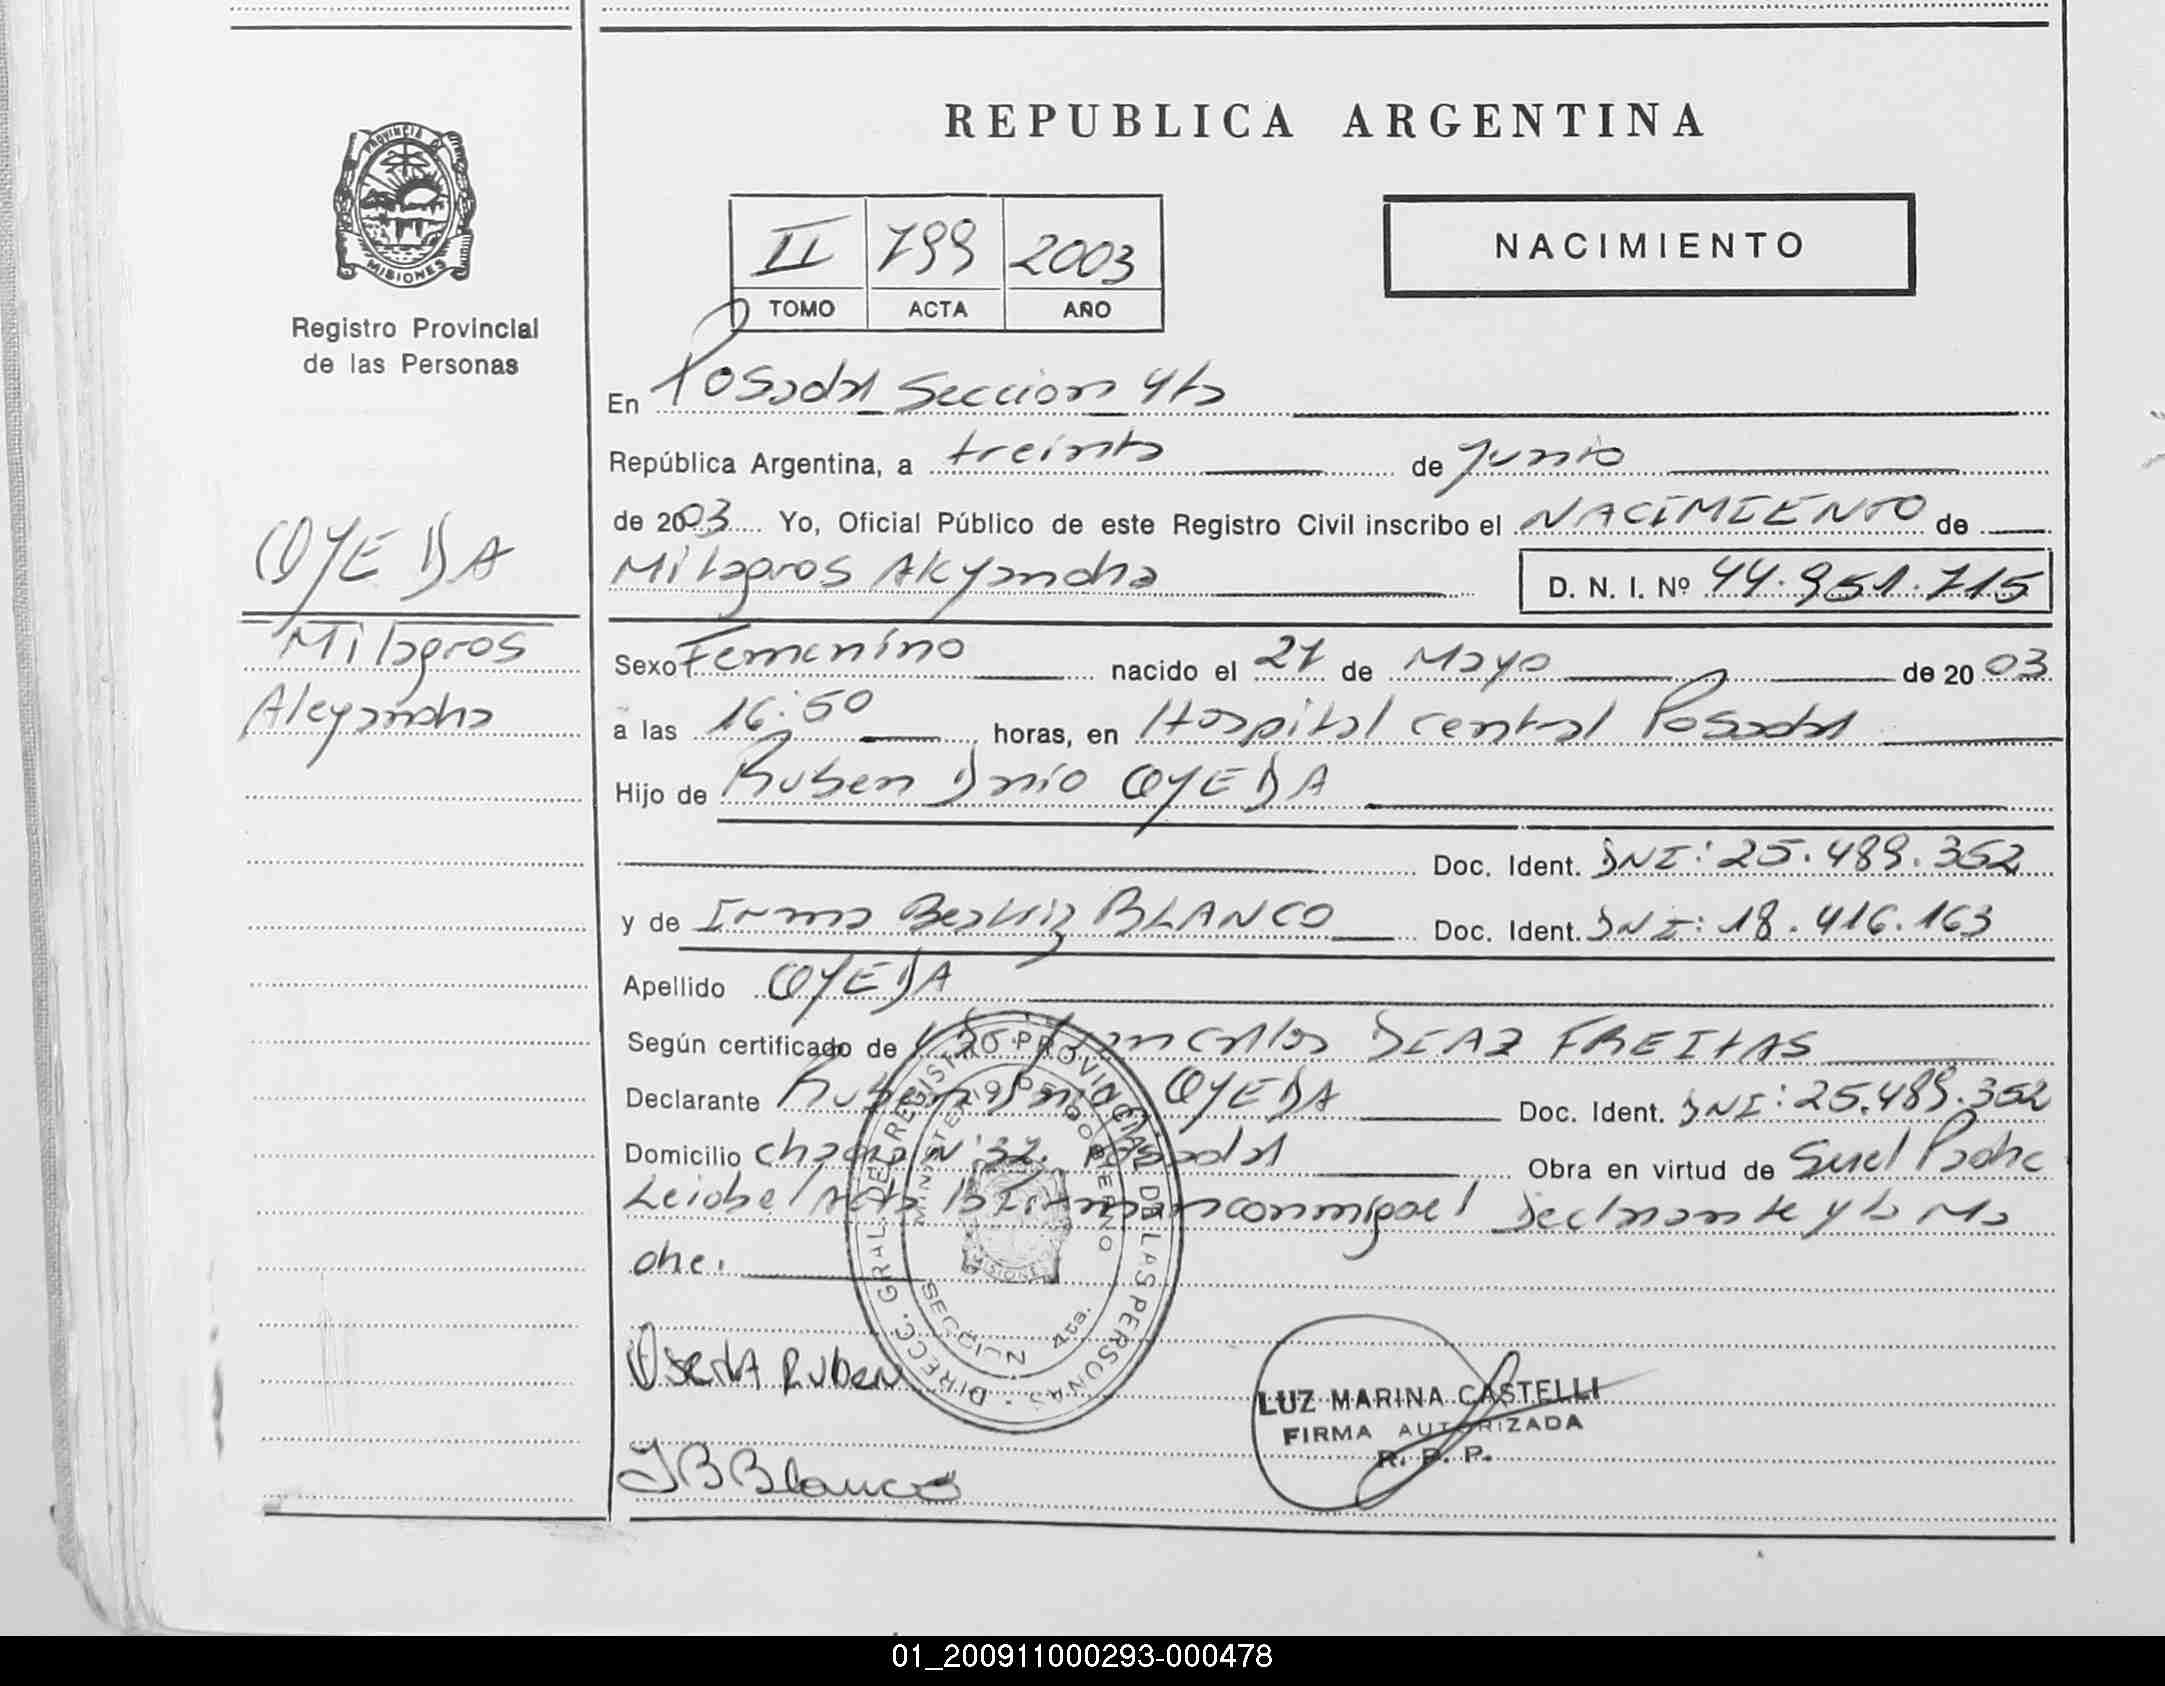 REPUBLICA ARGENTINA
PROVINCIA DE
MISIONES
Registro Provincial
de las Personas
II 799 2003
TOMO ACTA AÑO
NACIMIENTO
En Posadas Seccion 4ta
República Argentina, a treinta de Junio
de 2003 Yo, Oficial Público de este Registro Civil inscribo el NACIMIENTO de
Milagros Alejandra D. N. I. Nº 44.951.715
OJEDA
Milagros
Alejandra
Sexo Femenino nacido el 27 de Mayo de 2003
a las 16:50 horas, en Hospital central Posadas
Hijo de Ruben Dario OJEDA
Doc. Ident. DNI: 25.489.352
y de Irma Beatriz BLANCO Doc. Ident. DNI: 18.416.163
Apellido OJEDA
Según certificado de Juan Carlos DIAZ FREITAS
Declarante Ruben Dario OJEDA Doc. Ident. DNI: 25.489.352
Domicilio Chacra Nº 32. Posadas Obra en virtud de Ser el Padre
Leida el Acta la Firman conmigo el Declarante y la Ma
dre.
DIRECC. GRAL. DEL REGISTRO PROVINCIAL DE LAS PERSONAS
MINISTERIO DE GOBIERNO
MISIONES
SECCION 4ta.
Ojeda Ruben
LUZ MARINA CASTELLI
FIRMA AUTORIZADA
R. P. P.
IB Blanco
01_200911000293-000478